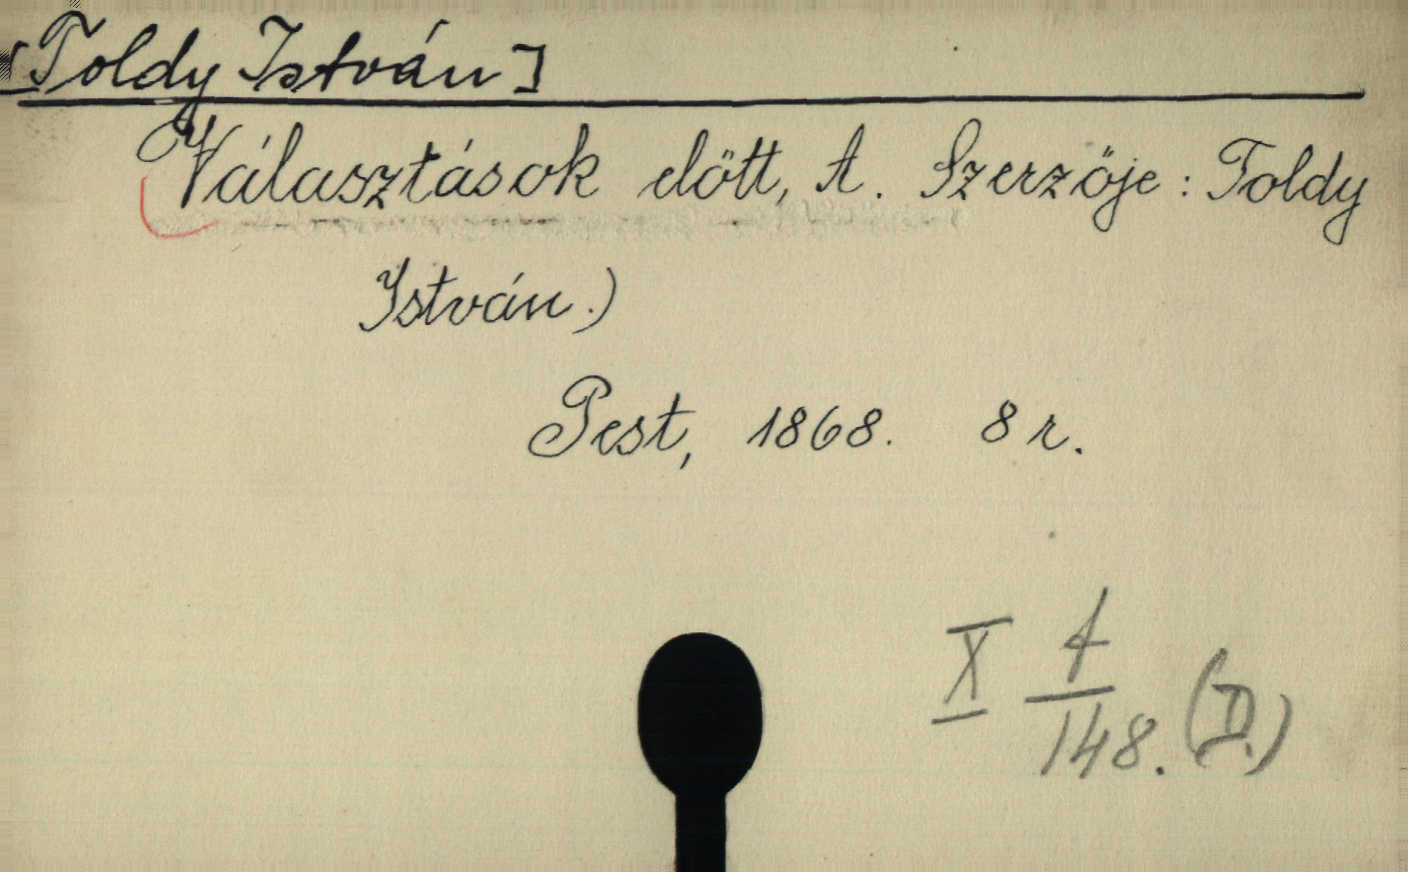 [Toldy István]
Választások előtt, A. Szerzője: Toldy
István.)
Pest, 1868. 8 r.
X 4/148. (D.)